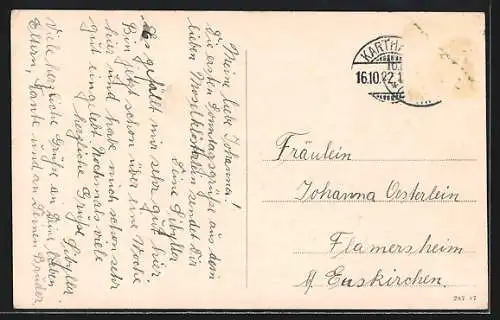 Meine liebe Johanna!
Die ersten Sonntagsgrüße aus dem
lieben Moselklösterlein sendet dir
Deine Sibylla
Es gefällt mir sehr gut hier.
Bin jetzt schon über eine Woche
hier und habe mich schon sehr
gut eingelebt. Nochmals viele
herzliche Grüße Sibylla
Viele herzliche Grüße an Deine lieben
Eltern, Tante und an Deinen Bruder
KARTHA
16.10.
Fräulein
Johanna Oesterlein
Flamersheim
b/ Euskirchen